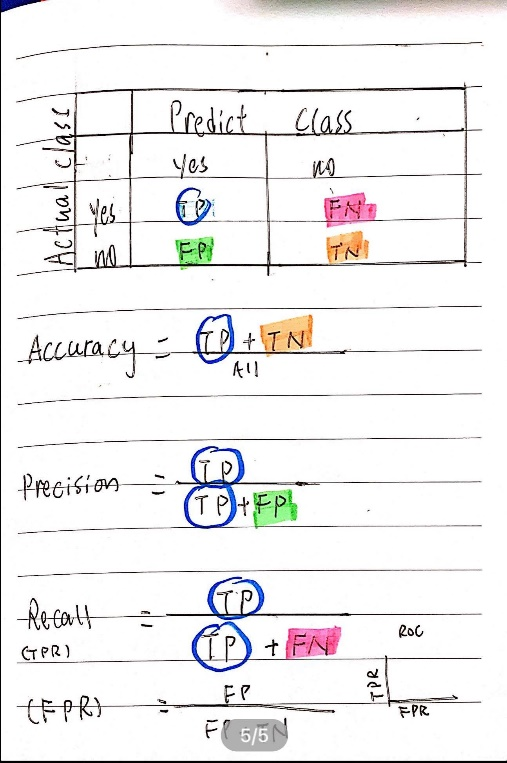 Predict Class
Actual class
yes no
yes TP FN
no FP TN
Accuracy = TP + TN
All
Precision = TP
TP + FP
Recall = TP
(TPR) TP + FN
ROC
TPR
FPR
(FPR) = FP
FP TN
5/5